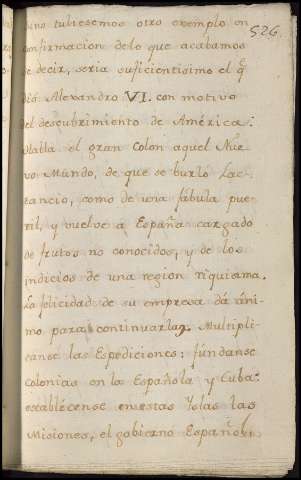 sino tubiesemos otro exemplo en
526.
confirmacion de lo que acabamos
de decir, seria suficientisimo el q̃
dió Alexandro VI. con motivo
del descubrimiento de América:
Halla el gran Colon aquel Nue-
vo Mundo, de que se burló Lac-
tancio, como de una fábula pue-
ril, y vuelve a España cargado
de frutos no conocidos, y de los
indicios de una region riquisima.
La felicidad de su empresa dá áni-
mo para continuarla, Multipli-
canse las Espediciones: fúndanse
Colonias en la Española y Cuba:
establécense en estas Yslas las
Misiones, el gobierno Español